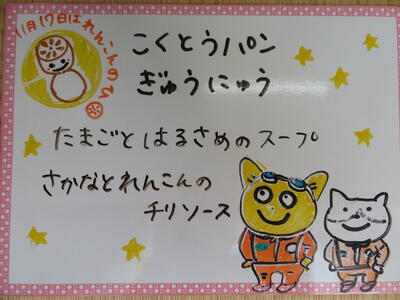 11月17日はれんこんのひ
こくとうパン
ぎゅうにゅう
たまごとはるさめのスープ
さかなとれんこんの
チリソース